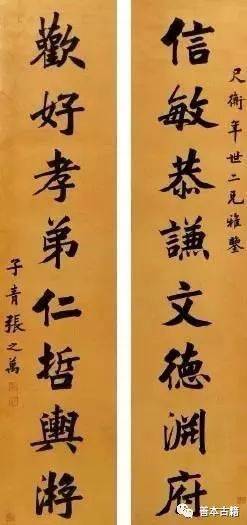 尺衡年世二兄雅鑒
信敏恭謙文德淵府
歡好孝弟仁哲輿游
子青張之萬
善本古籍